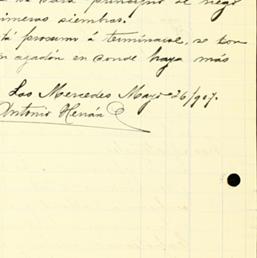 principio se negó
imeras siembras.
tá procsimo á terminarse, se con
n azadón en donde haya más
Las Mercedes Mayo 26/907.
Antonio Hernán